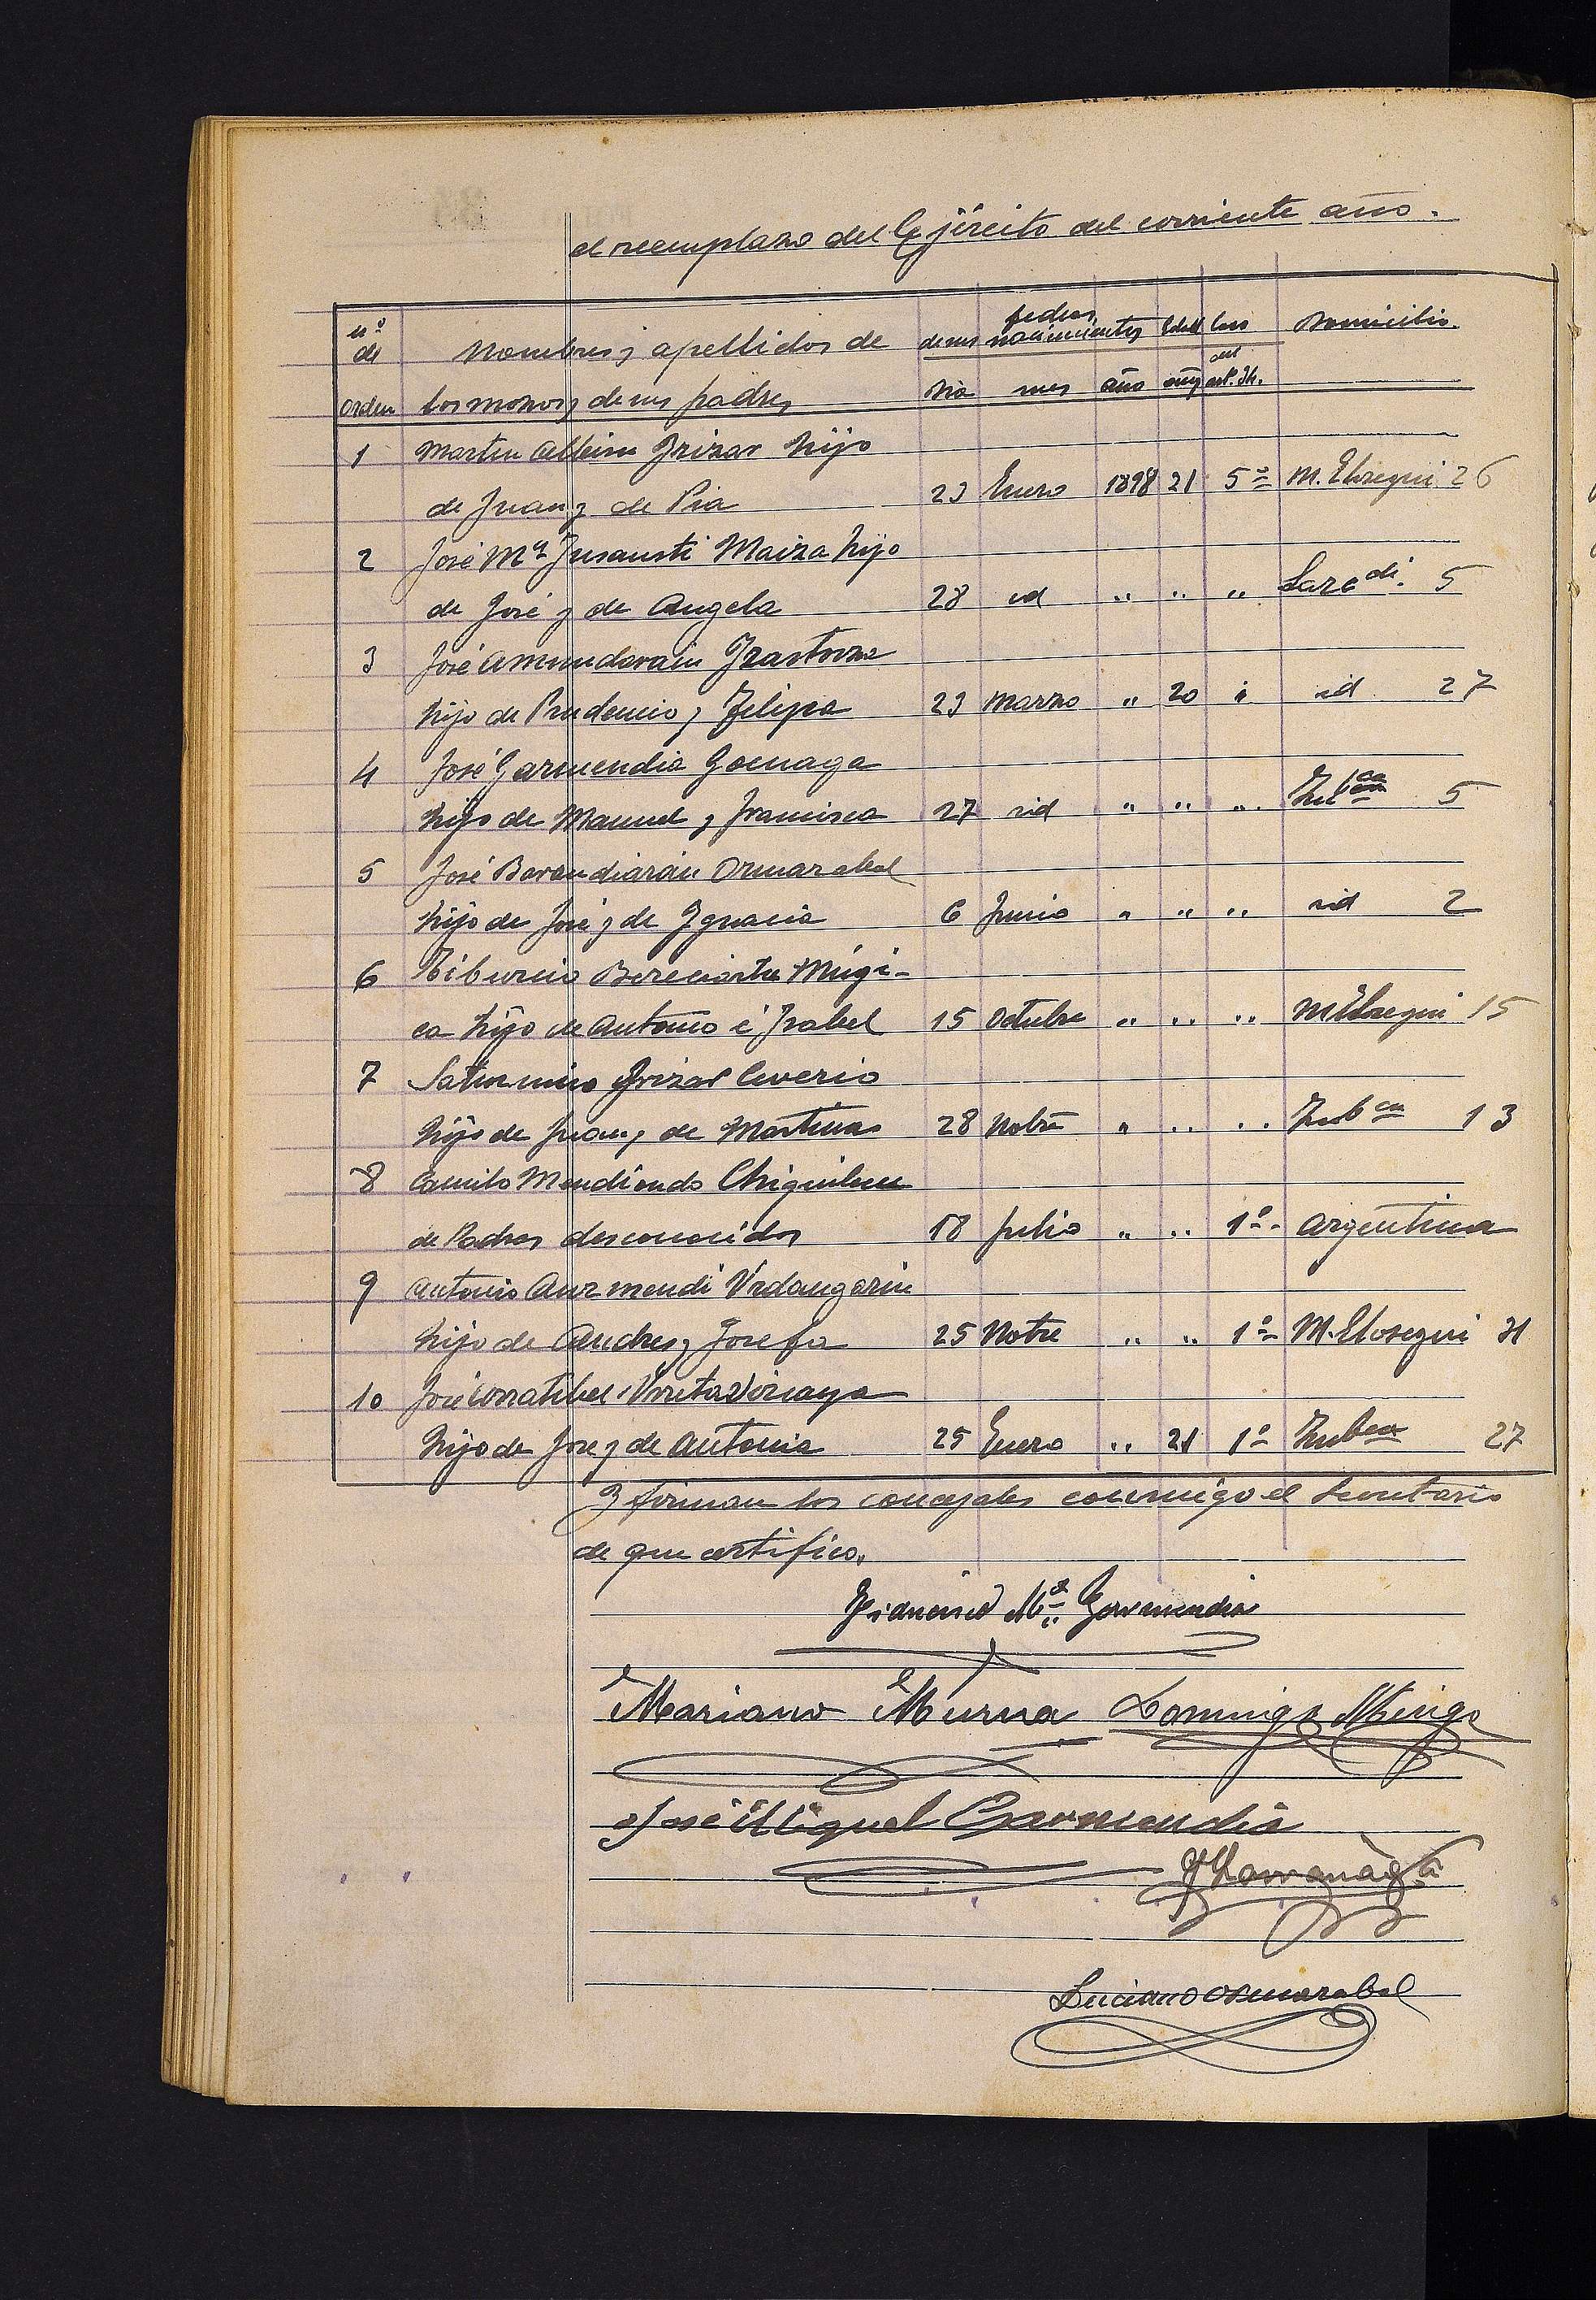 el reemplazo del Ejército del corriente año.
nº de Nombres y apellidos de de sus fechas nacimientos Edad Caso Domicilio.
Orden los mozos y de sus padres Dia mes año años del art. 34.
1 Martin Albisu Irizar hijo
de Juan y de Pia 23 Enero 1898 21 5º M. Elosegui 26
2 José Mª Insausti Maiza hijo
de José y de Angela 28 id " " " 5
3 José Amundarain Izastorza
hijo de Prudencio y Felipa 23 Marzo " 20 " id 27
4 José Garmendia Goenaga
hijo de Manuel y Francisca 27 id " " " 5
5 José Barandiarán Ormazabal
hijo de José y de Ignacia 6 Junio " " " id 2
6 Tiburcio Bereciartu Múgi-
ca hijo de Antonio é Isabel 15 Octubre " " " M Elosegui 15
7 Saturnino Irizar Ceverio
hijo de Juan y de Martina 28 Nobre " " " Zubca 13
8 Camilo Mendiondo
de Padres desconocidos 18 Julio " " 1º Argentina
9 Antonio Aurmendi Urdangarin
hijo de Andres y Josefa 25 Nobre " " 1º M. Elosegui 31
10 José Urretavizcaya
hijo de Jose y de Antonia 25 Enero " 21 1º Zubca 27
Y firman los concejales conmigo el Secretario
de que certifico.
Francisco Mª Garmendia
Mariano Murua Domingo
José Miguel Garmendia
Luciano Ormazabal